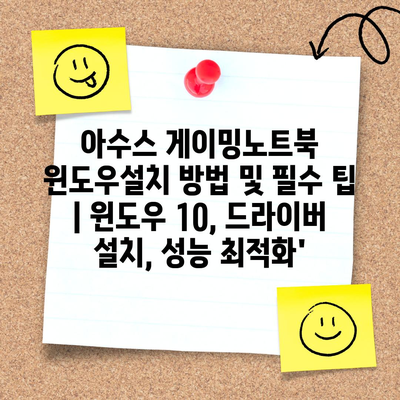 아수스 게이밍노트북
윈도우설치 방법 및 필수 팁
| 윈도우 10, 드라이버
설치, 성능 최적화'